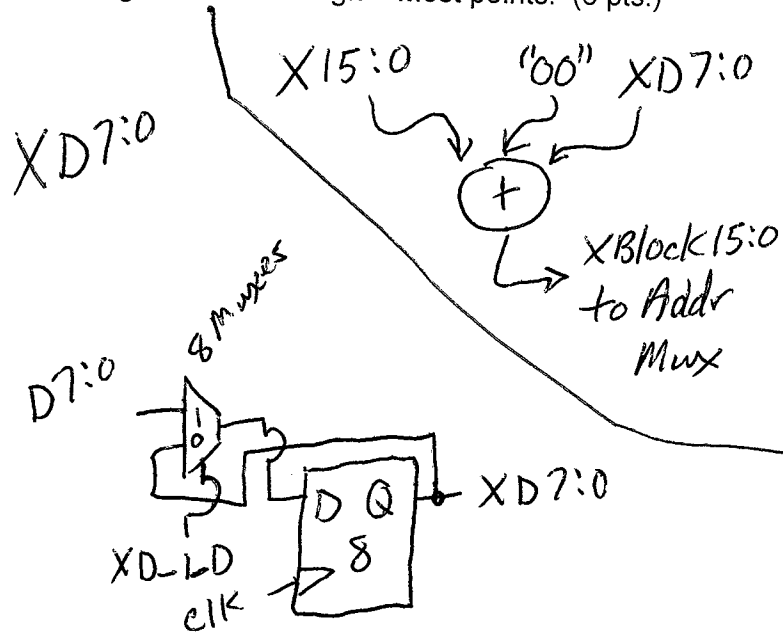 most points. (6 pts.)
X15:0 "00" XD7:0
XD7:0
+
XBlock15:0
to Addr
Mux
8 Muxes
D7:0
1
0
D Q
XD7:0
8
XD_LD
clk